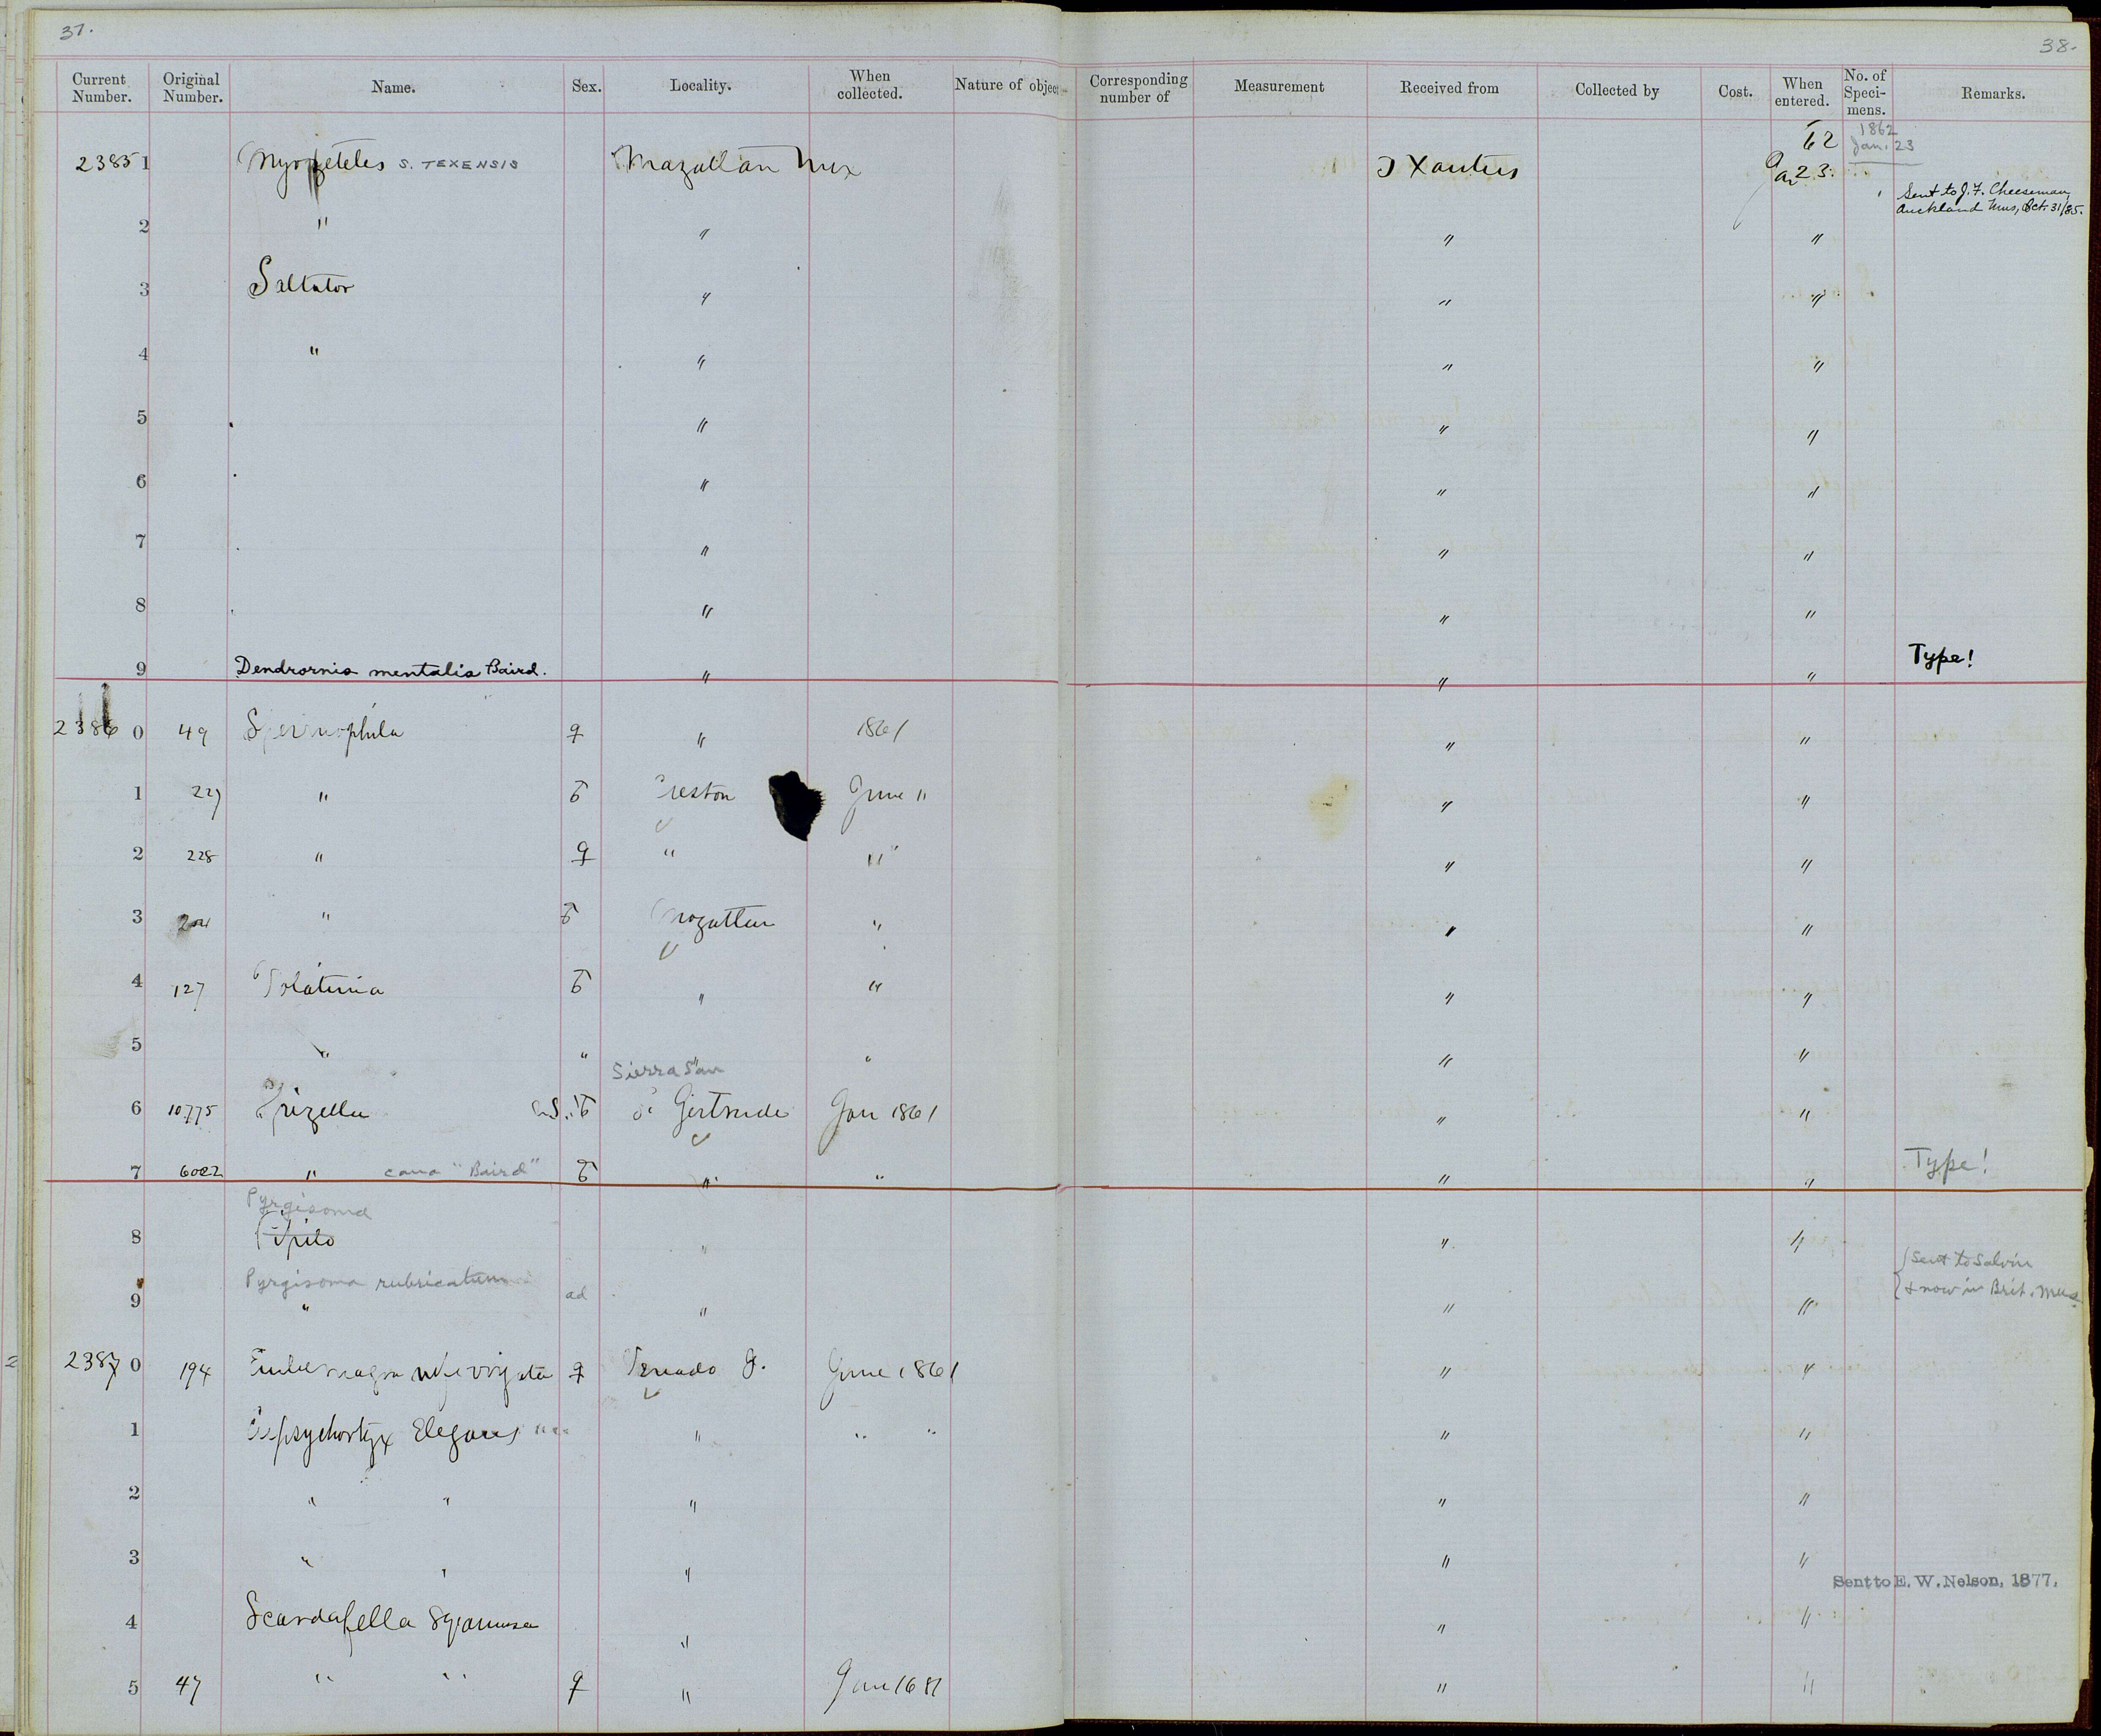 37.
38.
Current Number. Original Number. Name. Sex. Locality. When collected. Nature of objec Corresponding number of Measurement Received from Collected by Cost. When entered. No. of Speci-mens. Remarks.
62 1862
23851 S. TEXENSIS Mazatlan Mex J Xantus Jan 23. Jan. 23
Sent to J. F. Cheeseman,
Auckland Mus, Oct. 31/85.
2 " " " "
3 Saltator " " "
4 " " " "
5 " " "
6 " " "
7 " " "
8 " " "
9 Dendrornis mentalis Baird. " " " Type!
2386 0 49 Spermophila ♀ " 1861 " "
1 227 " ♂ June " " "
2 228 " ♀ " " " "
3 " ♂ Mazatlan " " "
4 127 Volatinia ♂ " " " "
5 " " " " " "
Sierra San
6 10775 Spizella ♂ Gertrude Jan 1861 " "
7 6002 " cana "Baird" ♂ " " " " Type!
Pyrgisoma
8 Pipilo " " "
{ Sent to Salvin
& now in Brit. Mus.
Pyrgisoma rubricatum
9 " ad " " "
2387 0 194 ♀ Venado J. June 1861 " "
1 Elegans " " " " "
2 " " " " "
3 " " " " "
Sent to E. W. Nelson, 1877.
4 Scardafella Squamosa " " "
5 47 " " ♀ " " "